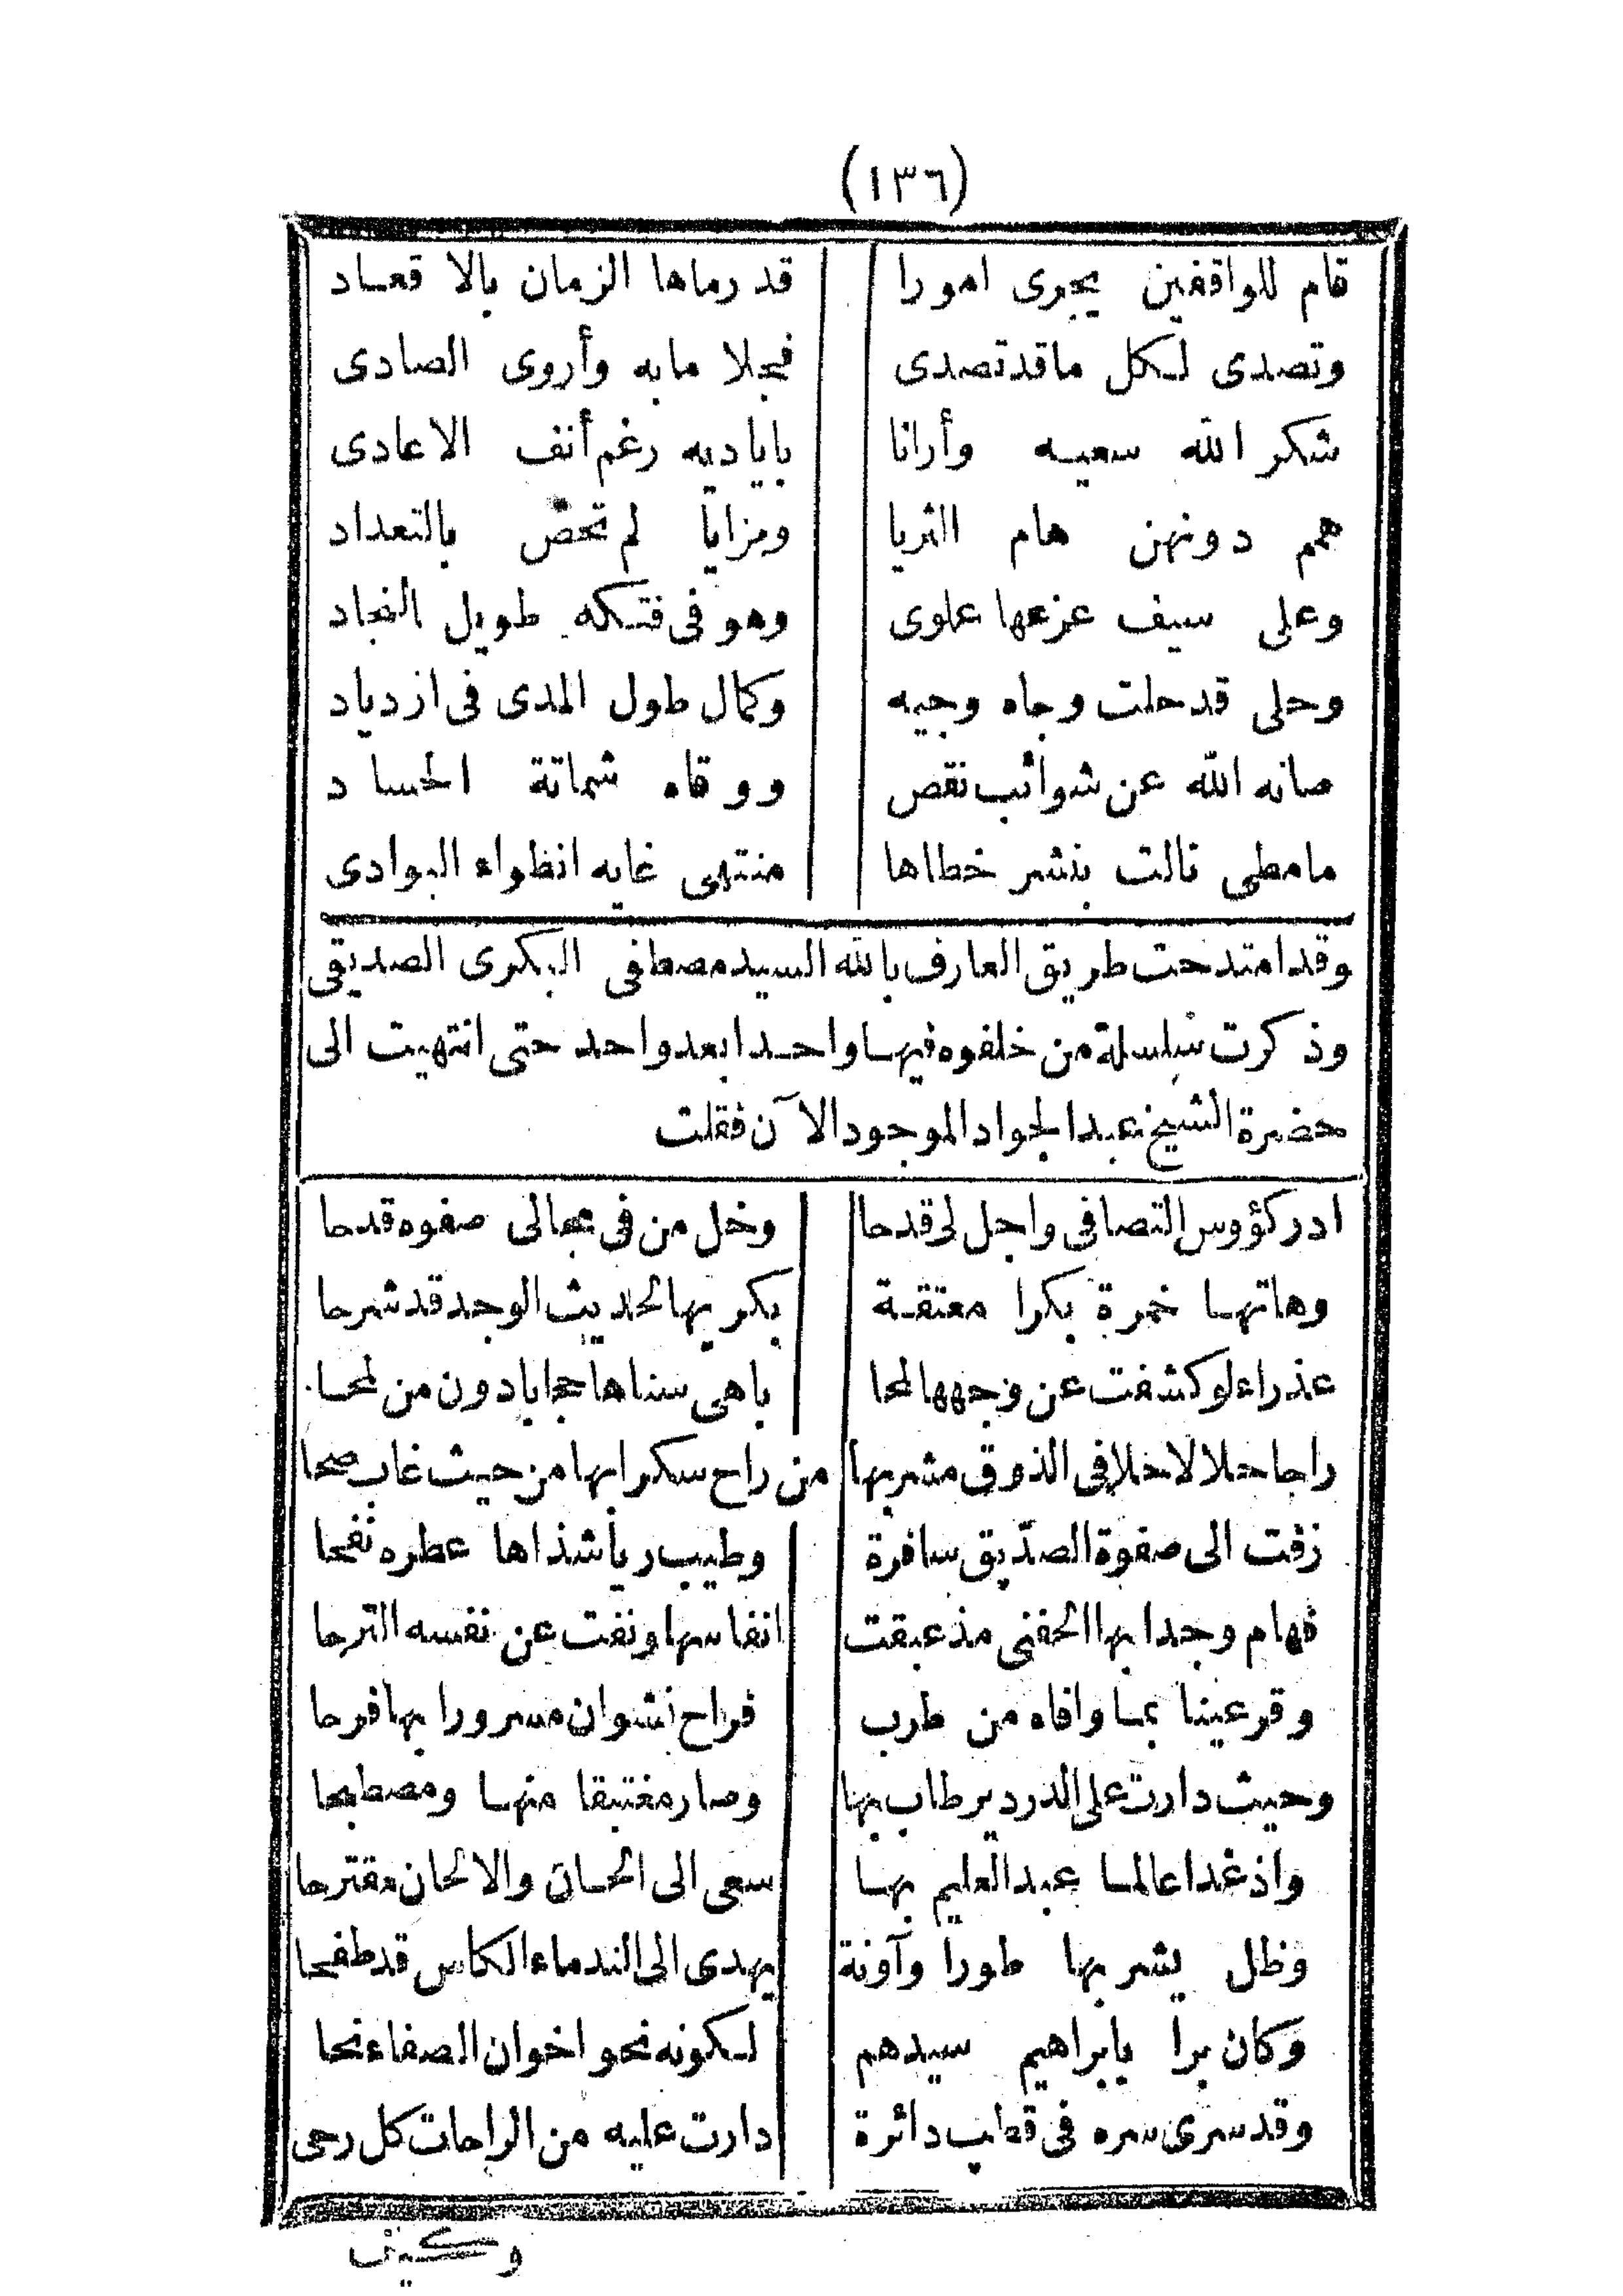 (١٣٦)
قام للواقفين يجرى امورا قد رماها الزمان بالا قعاد
وتصدى لكل ماقد تصدى فجلا مابه وأروى الصادى
شكر الله سعيه وأرانا باياديه رغم أنف الاعادى
همم دونهن هام الثريا ومزايا لم تحص بالتعداد
وعلى سيف عزعها علوى وهو فى فتكه طويل النجاد
وحلى قد حلت وجاه وجيه وكمال طول المدى فى ازدياد
صانه الله عن شوائب نقص ووقاه شماتة الحساد
مامطى نالت بنشر خطاها منتهى غايه انطواء البوادى
وقد امتدحت طريق العارف بالله السيد مصطفى البكرى الصديقى
وذكرت سلسلة من خلفوه فيها واحدا بعد واحد حتى انتهيت الى
حضرة الشيخ عبد الجواد الموجود الآن فقلت
ادر كؤوس التصافى واجل لى قدحا وخل من فى مجالى صفوه قدحا
وهاتها خمرة بكرا معتقة بكر بها لحديث الوجد قد شرحا
عذراء لو كشفت عن وجهها لمحا باهى سناها حجابا دون من لمحا
راحا حلالا حلا فى الذوق مشربها من راح سكرا بها من حيث غاب صحا
زفت الى صفوة الصديق سافرة وطيب ريا شذاها عطره نفحا
فهام وجدا بها الحفنى مذ عبقت انفاسها ونفت عن نفسه الترحا
وقر عينا بما وافاه من طرب فراح نشوان مسرورا بها فرحا
وحيث دارت على الدردير طاب بها وصار مغتبقا منها ومصطبحا
واذ غدا عالما عبد العليم بها سعى الى الحان والالحان مقترحا
وظل يشربها طورا وآونة يهدى الى الندماء الكاس قد طفحا
وكان برا بابراهيم سيدهم لكونه نحو اخوان الصفاء نحا
وقد سرى سره فى قطب دائرة دارت عليه من الراحات كل رحى